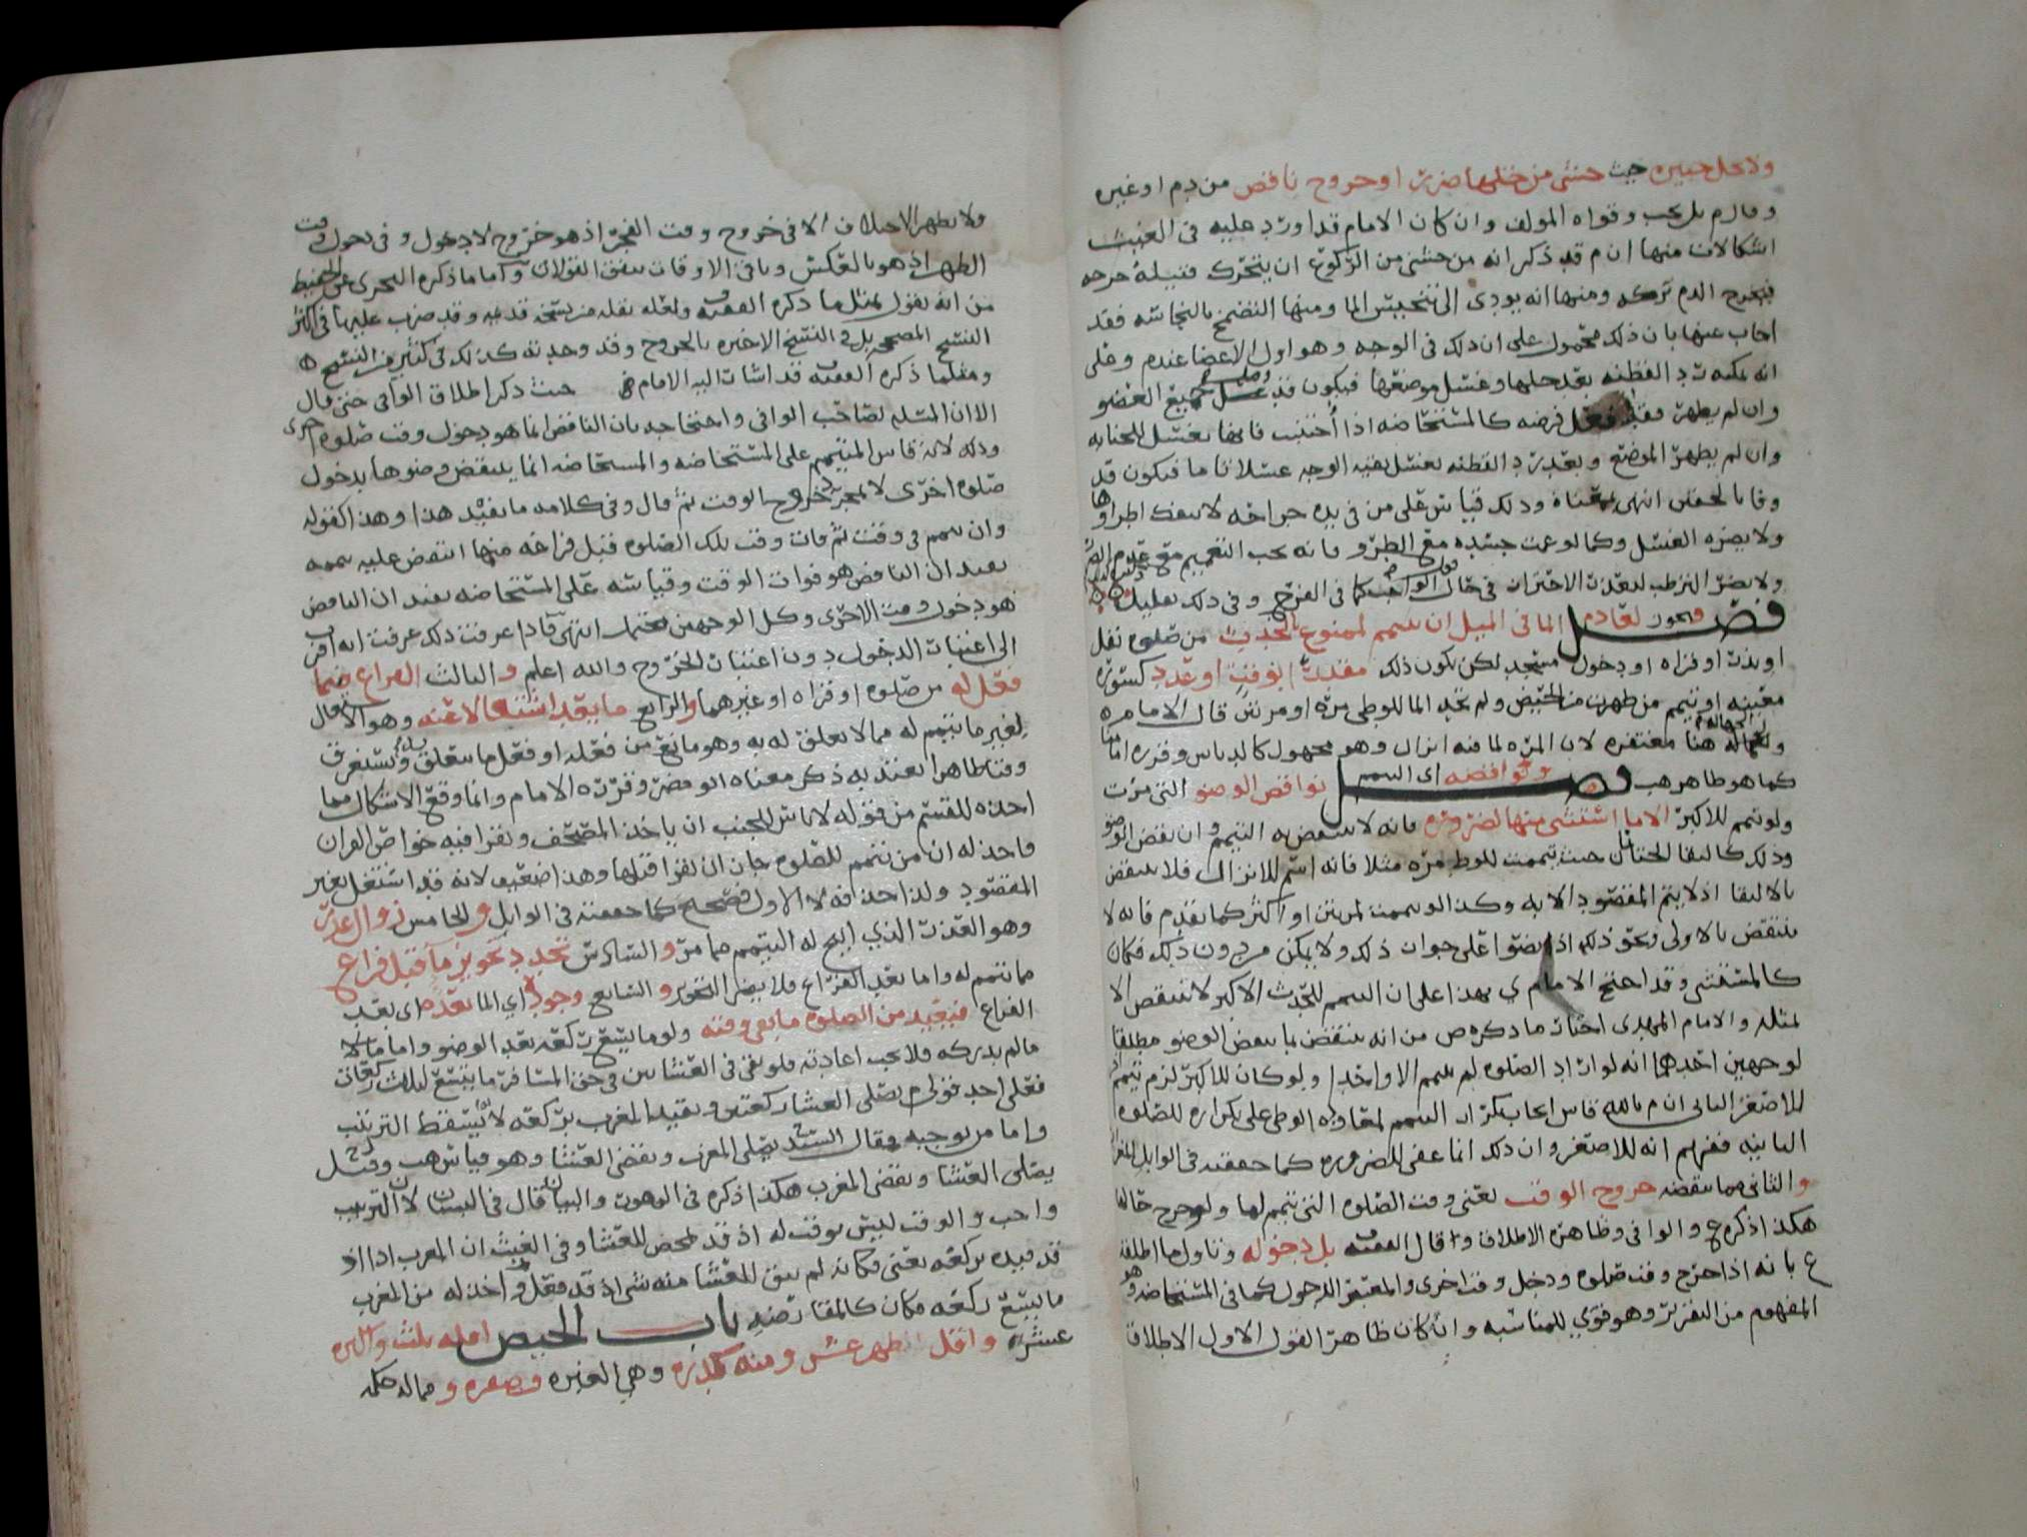 ولا يحل جبيره حيث خشى من حلها ضررا او خروج ناقض من دم او غيره
و قال م بل يجب وقواه المولف وان كان الامام قد اورد عليه في الغيث
اشكالات منها ان م قد ذكر انه من خشى من الركوع ان يتحرك فتيلة جرحه
فيخرج الدم تركه ومنها انه يودى الى تنجيس الما ومنها التضمخ بالنجاسه فقد
اجاب عنها بان ذلك محمول على ان ذلك في الوجه وهو اول الاعضا عندم وعلى
انه يمكنه رد القطنه بعد حلها وغسل موضعها فيكون قد غسل جميع العضو
وان لم يطهر فقد فعل فرضه كالمستحاضه اذا أجنبت فانها تغتسل للجنابه
وان لم يطهر الموضع وبعد رد القطنه يغسل بقيه الوجه غسلا تاما فيكون قد
وفا بالحقين انتهى معناه وذلك قياس على من في بدنه جراحه لا ينفك اطراوها
ولا يضره الغسل وكما لو عمت جسده مع الطرو فانه يجب التعميم مع عدم الضرر
ولا يضر الترطب لتعذر الاحتراز في حال الواجب كما في الفرج وفي ذلك تعليل
فصل ويجوز لعادم الما في الميل ان يتيمم لممنوع بالحدث من صلوه نفل
او نذر او قراه او دخول مسجد لكن يكون ذلك مقدرا بوقت او عدد كسوره
معينه او تتيمم من طهرت من الحيض ولم تجد الما للوطى مره او مرتين قال الامام
والجهاله هنا مغتفره لان المره لما فيه انزال وهو مجهول كالدباس وقرره امامنا
كما هو ظاهر هب فصل ونواقضه اى التيمم نواقض الوضو التى مرت
ولو تيمم للاكبر الا ما استثنى منها لضروره فانه لا ينتقض به التيمم وان نقض الوضو
وذلك كالتقا الختانين حيث تيممت للوطى مره مثلا فانه اسم للانزال فلا ينتقض
بالالتقا اذ لا يتم المقصود الا به وكذا لو تيممت لمرتين او اكثر كما تقدم فانه لا
ينتقض بالاولى ونحو ذلك اذا نصوا على جواز ذلك ولا يمكن من دون ذلك فكان
كالمستثنى وقد احتج الامام ي بهذا على ان التيمم للحدث الاكبر لا ينتقض الا
بمثله والامام المهدى اختار ما ذكره ص من انه ينتقض بما ينقض الوضو مطلقا
لوجهين احدهما انه لو اراد الصلوه لم يتيمم الا واحدا ولو كان للاكبر لزم تيمم
للاصغر الثانى ان م بالله قاس ايجاب تكرار التيمم لمعاوده الوطى على تكراره للصلوه
الثانيه ففهم انه للاصغر وان ذلك انما عفى للضروره كما حققته في الوابل المغزار
والثانى مما ينقضه خروج الوقت يعنى وقت الصلوه التى تيمم لها ولو خرج حالها
هكذا ذكره ع والوافي وظاهره الاطلاق وقال الفقيه بل دخوله وتاول ما اطلقه
ع بانه اذا خرج وقت صلوه دخل وقت اخرى والمعتبر الدخول كما في المستحاضه وهو
المفهوم من التقرير وهو قوي للمناسبه وان كان ظاهر القول الاول الاطلاق
ولا يظهر الاختلاف الا في خروج وقت الفجر اذ هو خروج لا دخول وفي دخول وقت
الظهر اذ هو بالعكس وباقي الاوقات يتفق القولان واما ما ذكره النجرى عن الحفيظ
من انه يقول بمثل ما ذكره الفقيه ولعله نقله من نسخه قديمه وقد ضرب عليها في اكثر
النسخ المصححه بل في النسخ الاخيره بالخروج وقد وجدته كذلك في كثير من النسخ
ومثلما ذكره الفقيه قد اشار اليه الامام حيث ذكر اطلاق الوافي حتى قال
الا ان المسله لصاحب الوافي واحتجاجه بان الناقض انما هو دخول وقت صلوه اخرى
وذلك لانه قاس المتيمم على المستحاضه والمستحاضه انما ينتقض وضوها بدخول
صلوه اخرى لا بمجرد خروج الوقت ثم قال وفي كلامه ما يفيد هذا وهذا كقوله
وان تيمم في وقت ثم فات وقت تلك الصلوه قبل فراغه منها انتقض عليه تيممه
يفيد ان الناقض هو فوات الوقت وقياسه على المستحاضه يفيد ان الناقض
هو دخول وقت الاخرى وكل الوجهين محتمل انتهى فاذا عرفت ذلك عرفت انه اقرب
الى اعتبار الدخول دون اعتبار الخروج والله اعلم والثالث الفراغ مما
فعل له من صلوه او قراه او غيرهما والرابع ما بعد اشتغاله وهو الاشتغال
لغير ما تيمم له مما لا تعلق له به وهو مانع من فعله او فعل ما يتعلق به ويستغرق
وقتا ظاهرا يعتد به ذكر معناه ابو مضر وقرره الامام وانما وقع الاشكال فيما
اخذه للمقسم من قوله لا باس للجنب ان ياخذ المصحف ويقرا فيه خواص القران
فاخذ له ان من تيمم للصلوه جاز ان يقرا قبلها وهذا ضعيف لانه قد اشتغل بغير
المقصود ولذا حذافه لا الاول فصحيح كما حققته في الوابل والخامس زوال العذر
وهو العذر الذي ابيح له التيمم مما مر والسادس تجدد تجويز ما قبل فراغ
مما تيمم له واما بعد الفراغ فلا يضر التجويز والسابع وجود اي الما بعده اى بعد
الفراغ فيعيد من الصلوه ما بقي وقته ولو ما يتسع ركعه بعد الوضو واما ما لا
مالم يدركه فلا يجب اعادته فلو بقى في العشاين في حق المسافر ما يتسع لثلاث ركعات
فعلى احد قولى م يصلى العشا ركعتين ويقيد المغرب بركعه لانه يسقط الترتيب
واما من يوجبه فقال السيد يصلى المغرب ويقضى العشا وهو قياس هب وقيل
يصلى العشا ويقضى المغرب هكذا ذكره في الزهور والبيان قال في البستان لان الترتيب
واجب والوقت ليس بوقت له اذ قد تمحض للعشا وفي الغيث ان المغرب اذا
قد قيده بركعه يعنى فكانه لم يبق للعشا منه شى اذ قد فعل واخذ له من المغرب
ما يتسع ركعه فكان كالمعارضه باب الحيض اقله ثلث واكثره
عشره واقل طهر عشر ومنه كدره وهي الغبره وصفره ومماله حكمه